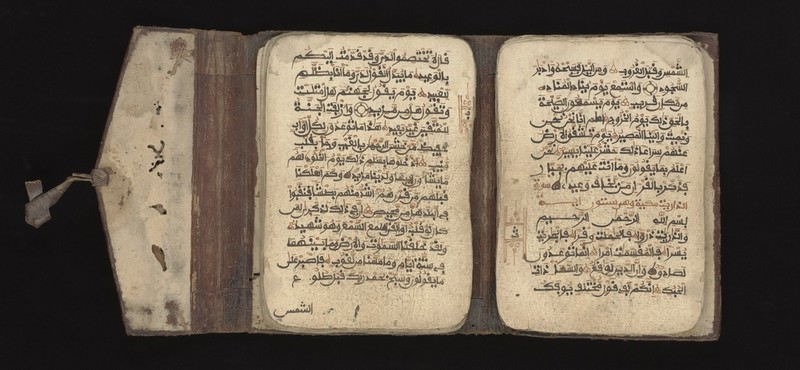 قال لا تختصموا لدي وقد قدمت إليكم
بالوعيد ما يبدل القول لدي وما أنا بظلم
للعبيد يوم يقول لجهنم هل امتلئت
وتقول هل من مزيد وأزلفت الجنة
للمتقين غير بعيد هذا ما توعدون لكل أواب
حفيظ من خشي الرحمن بالغيب وجاء بقلب
منيب ادخلوها بسلم ذلك يوم الخلود لهم
ما يشاءون فيها ولدينا مزيد وكم أهلكنا
قبلهم من قرن هم أشد منهم بطشا فنقبوا
في البلد هل من محيص إن في ذلك لذكرى لمن
كان له قلب أو ألقى السمع وهو شهيد
ولقد خلقنا السموت والأرض وما بينهما
في ستة أيام وما مسنا من لغوب فاصبر على
ما يقولون وسبح بحمد ربك قبل طلوع
الشمس
الشمس وقبل الغروب ومن اليل فسبحه وأدبر
السجود واستمع يوم يناد المناد
من مكان قريب يوم يسمعون الصيحة
بالحق ذلك يوم الخروج إنا نحن نحي
ونميت وإلينا المصير يوم تشقق الأرض
عنهم سراعا ذلك حشر علينا يسير نحن
أعلم بما يقولون وما أنت عليهم بجبار
فذكر بالقرءان من يخاف وعيد سورة
الذاريات مكية وهي ستون
بسم الله الرحمن الرحيم
والذاريات ذروا فالحملت وقرا فالجريت
يسرا فالمقسمت أمرا إنما توعدون
لصادق وإن الدين لوقع والسماء ذات
الحبك إنكم لفي قول مختلف يوفك